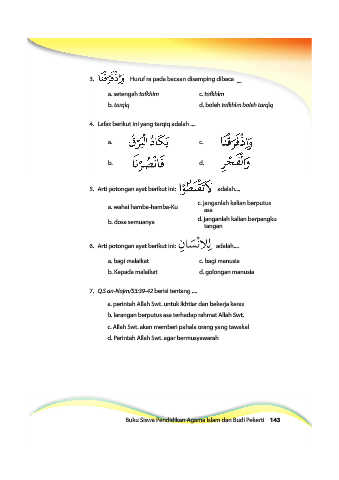 3. وَإِذْفَرَقْنَا Huruf ra pada bacaan disamping dibaca __
a. setengah tafkhim
c. tafkhim
b. tarqiq
d. boleh tafkhim boleh tarqiq
4. Lafaz berikut ini yang tarqiq adalah ....
a. يَكَادُ الْبَرْقُ
c. وَإِذْفَرَقْنَا
b. فَانْصُرْنَا
d. وَالْفَجْرِ
5. Arti potongan ayat berikut ini: لَا تَقْنَطُوْا adalah....
a. wahai hamba-hamba-Ku
c. janganlah kalian berputus
asa
b. dosa semuanya
d. janganlah kalian berpangku
tangan
6. Arti potongan ayat berikut ini: لِلْإِنْسَانِ adalah....
a. bagi malaikat
c. bagi manusia
b. Kepada malaikat
d. golongan manusia
7. Q.S an-Najm/53:39-42 berisi tentang ....
a. perintah Allah Swt. untuk ikhtiar dan bekerja keras
b. larangan berputus asa terhadap rahmat Allah Swt.
c. Allah Swt. akan memberi pahala orang yang tawakal
d. Perintah Allah Swt. agar bermusyawarah
Buku Siswa Pendidikan Agama Islam dan Budi Pekerti 143